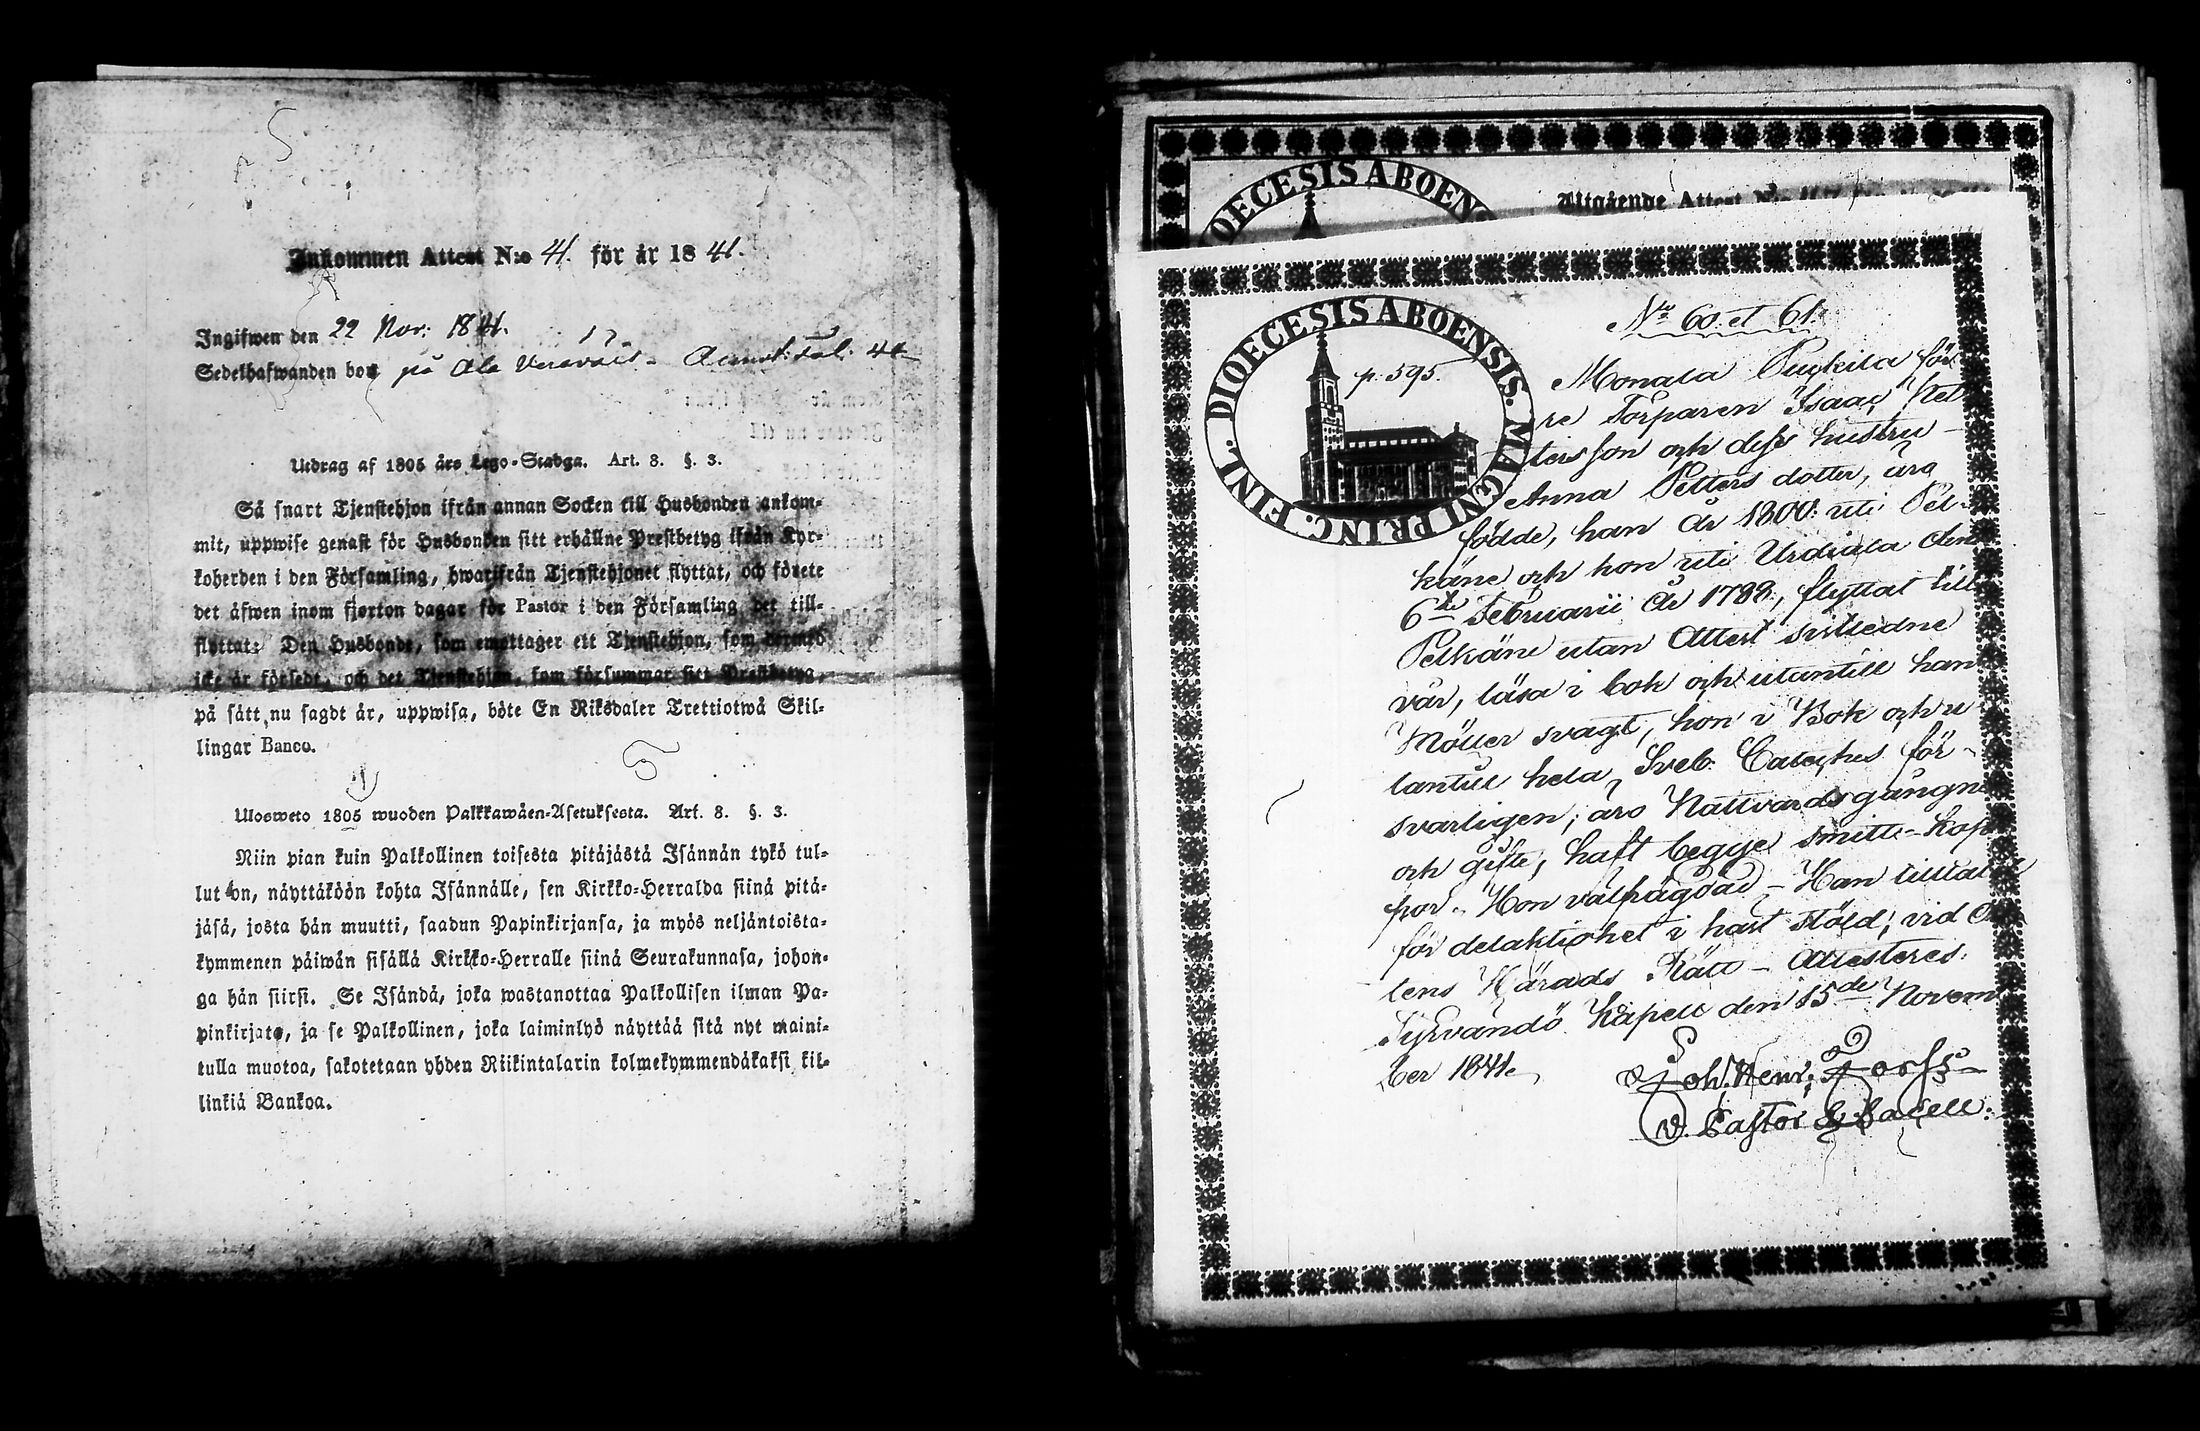 Inkommen Attest N:o 41. för år 1841.
Ingifwen den 22 Nov: 1841.
Sedelhafwanden bor på Ala
Utdrag af 1805 års Lego-Stadga. Art. 8. §. 3.
Så snart Tjenstehjon ifrån annan Socken till Husbonden ankom-
mit, uppwise genast för Husbonden sitt erhållne Prestbetyg ifrån Kyr-
koherden i den Församling, hwarifrån Tjenstehjonet flyttat, och förete
det äfwen inom fjorton dagar för Pastor i den Församling det till-
flyttat: Den Husbonde, som emottager ett Tjenstehjon, som dermed
icke är försedt, och det Tjenstehjon, som försummar sitt Prestbetyg,
på sätt nu sagdt är, uppwisa, böte En Riksdaler Trettiotwå Skil-
lingar Banco.
Ulosweto 1805 wuoden Palkkawäen-Asetuksesta. Art. 8. §. 3.
Niin pian kuin Palkollinen toisesta pitäjästä Isännän tykö tul-
lut on, näyttäköön kohta Isännälle, sen Kirkko-Herralda siinä pitä-
jäsä, josta hän muutti, saadun Papinkirjansa, ja myös neljäntoista-
kymmenen päiwän sisällä Kirkko-Herralle siinä Seurakunnasa, johon-
ga hän siirsi. Se Isändä, joka wastanottaa Palkollisen ilman Pa-
pinkirjata, ja se Palkollinen, joka laiminlyö näyttää sitä nyt maini-
tulla muotoa, sakotetaan yhden Riikintalarin kolmekymmendäkaksi kil-
linkiä Bankoa.
DIOECESIS ABOENS
Utgående Attest N:o
DIOECESIS ABOENSIS. MAGNI PRINC. FINL.
p. 595.
No 60 et 61.
Monala Puckila för
re Torparen Isaac Pet
tersson och dess hustru
Anna Petters dotter, äro
födde, han År 1800 uti Pel-
käne och hon uti Urdiala den
6te Februarii År 1788, flyttat till
Pelkäne utan Attest sistledne
vår, läsa i bok och utantill han
Möller svagt, hon i Bok och u
tantill hela Sveb. Cateches för-
svarligen; äro Nattvardsgångne
och gifte, haft begge smitt-kop
por. Hon välfrägdad - Han tilltalt
för delaktighet i häst stöld, vid
tens Härads Rätt - Attesteres.
Tyrvändö Kapell den 15de Novem
ber 1841.
Joh. Henr.
v. Pastor & Sacell: